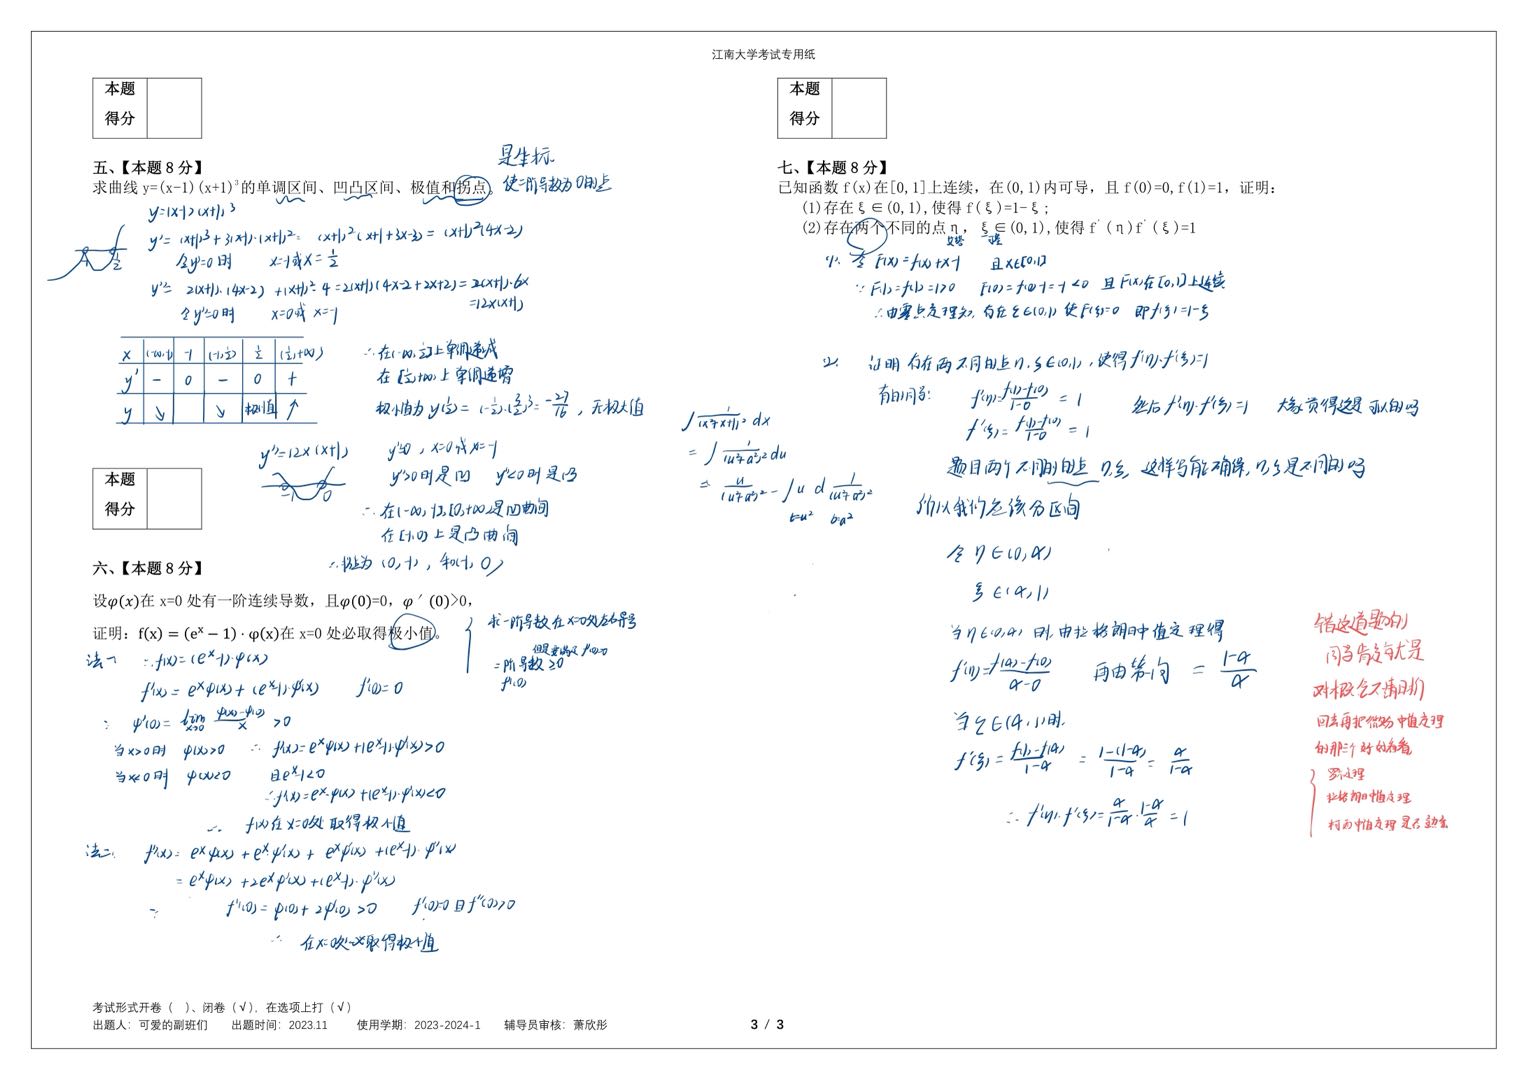 江南大学考试专用纸
本题
得分
五、【本题 8 分】
求曲线 y=(x-1)(x+1)³的单调区间、凹凸区间、极值和拐点。
是坐标
使二阶导数为0的点
y=(x-1)(x+1)³
y'= (x+1)³+3(x-1)·(x+1)²= (x+1)²(x+1+3x-3)=(x+1)²(4x-2)
令y'=0时 x=-1或x=1/2
y''= 2(x+1)·(4x-2)+(x+1)²·4=2(x+1)(4x-2+2x+2)=2(x+1)·6x
=12x(x+1)
令y''=0时 x=0或x=-1
x (-∞,-1) -1 (-1,1/2) 1/2 (1/2,+∞)
y' - 0 - 0 +
y ↘ ↘ 极小值 ↑
∴在(-∞,1/2]上单调递减
在[1/2,+∞)上单调递增
极小值为 y(1/2)=(-1/2)·(3/2)³=-27/16, 无极大值
y''=12x(x+1) y''=0, x=0或x=-1
-1 0
y''>0时是凹 y''<0时是凸
∴在(-∞,-1],[0,+∞)是凹曲间
在[-1,0]上是凸曲间
∴拐点为(0,-1), 和(-1,0)
∫ 1/(x²+x+1)² dx
= ∫ 1/(u²+a²)² du
= u/(u²+a²)² - ∫u d 1/(u²+a²)²
t=u² b=a²
本题
得分
六、【本题 8 分】
设φ(x)在 x=0 处有一阶连续导数，且φ(0)=0，φ′(0)>0，
证明：f(x) = (eˣ − 1)·φ(x)在 x=0 处必取得极小值。
求一阶导数在x=0处左右异号
但是要满足f'(0)=0
二阶导数≥0
f''(0)
法一 ∴f(x)=(eˣ-1)·φ(x)
f'(x)= eˣφ(x)+(eˣ-1)·φ'(x) f'(0)=0
∵ φ'(0)= lim x→0 φ(x)-φ(0)/x >0
当x>0时 φ(x)>0 ∴ f'(x)=eˣφ(x)+(eˣ-1)·φ'(x)>0
当x<0时 φ(x)<0 且eˣ-1<0
∴f'(x)=eˣ·φ(x)+(eˣ-1)·φ'(x)<0
∴ f(x)在x=0处取得极小值
法二 f''(x)= eˣφ(x)+eˣφ'(x)+ eˣφ'(x)+(eˣ-1)·φ''(x)
= eˣφ(x)+2eˣφ'(x)+(eˣ-1)·φ''(x)
∵ f''(0)=φ(0)+2φ'(0)>0 f'(0)=0且f''(0)>0
∴ 在x=0处必取得极小值
考试形式开卷（ ）、闭卷（√），在选项上打（√）
出题人：可爱的副班们 出题时间：2023.11 使用学期：2023-2024-1 辅导员审核：萧欣彤
3 / 3
本题
得分
七、【本题 8 分】
已知函数 f(x)在[0,1]上连续，在(0,1)内可导，且 f(0)=0,f(1)=1，证明：
(1)存在ξ∈(0,1),使得 f(ξ)=1-ξ;
(2)存在两个不同的点η，ξ∈(0,1),使得 f′(η)f′(ξ)=1
(1). 令 F(x)=f(x)+x-1 且x∈[0,1]
∵F(1)=f(1)=1>0 F(0)=f(0)-1=-1<0 且F(x)在[0,1]上连续
∴由零点定理知, 存在ξ∈(0,1) 使F(ξ)=0 即f(ξ)=1-ξ
(2). 证明存在两不同的点η,ξ∈(0,1), 使得f'(η)·f'(ξ)=1
有的同学: f'(η)=f(1)-f(0)/1-0 = 1 然后f'(η)·f'(ξ)=1 大家觉得这是可以的吗
f'(ξ)= f(1)-f(0)/1-0 = 1
题目两个不同的的点η,ξ, 这样写能确保,η,ξ是不同的吗
所以我们应该分区间
令η∈(0,α)
ξ∈(α,1)
当η∈(0,α)时,由拉格朗日中值定理得
f'(η)=f(α)-f(0)/α-0 再由第一问 = 1-α/α
当ξ∈(α,1)时,
f'(ξ)= f(1)-f(α)/1-α = 1-(1-α)/1-α = α/1-α
∴f'(η)·f'(ξ)= α/1-α · 1-α/α =1
错这道题的
同学肯定就是
对概念不清晰
回去再把微分中值定理
的那三个好好看看
罗尔定理
拉格朗日中值定理
柯西中值定理